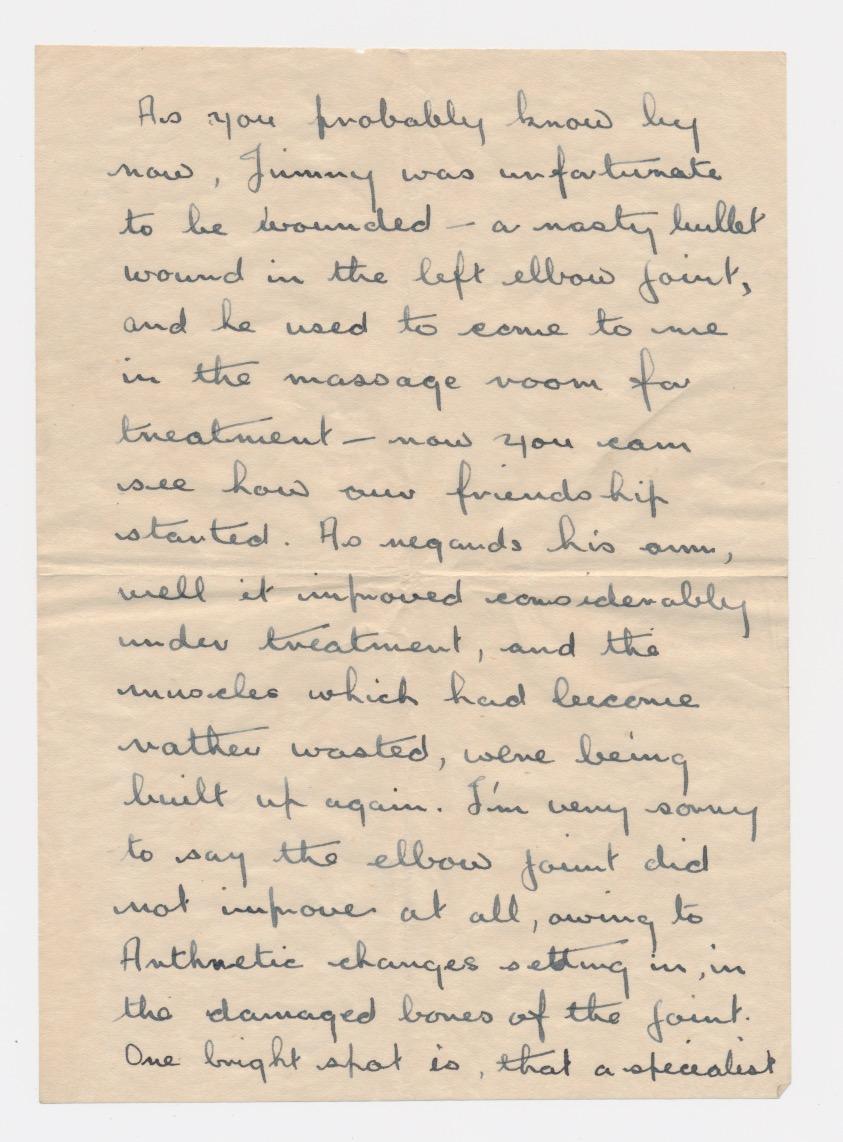 As you probably know by
now, Jimmy was unfortunate
to be wounded – a nasty bullet
wound in the left elbow joint,
and he used to come to me
in the massage room for
treatment – now you can
see how our friendship
started. As regards his arm,
well it improved considerably
under treatment, and the
muscles which had become
rather wasted, were being
built up again. I'm very sorry
to say the elbow joint did
not improve at all, owing to
Arthretic changes setting in, in
the damaged bones of the joint.
One bright spot is, that a specialist